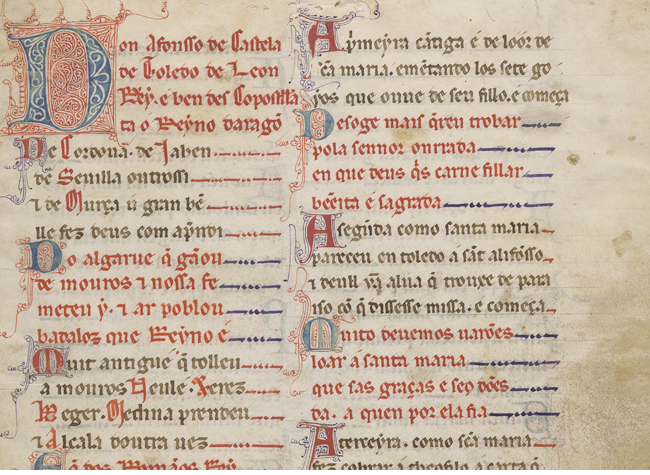 Don Afonsso de Castela
de Toledo de Leon
Rey. e ben des Copostla
ta ó Reyno daragõ
De Cordoua. de Jahen
de Seuilla outrossi
⁊ de Murça u gran bẽ
lle fez deus com apndi
Do algarue q̃ gãou
de mouros ⁊ nossa fe
meteu y. ⁊ ar poblou
badaloz que Reyno é
Muit antigue q̃ tolleu
a mouros Neule. Xerez
Beger. Medina prenden
⁊ Alcala doutra uez
A pmeyra cãtiga é de loor de
sc̃a maria. emẽtando los sete go
yos que ouue de seu fillo. e começa
Desoge mais qreu trobar
pola sennor onrrada
en que deus qs carne fillar
bẽeita e sagrada
A segũda como santa maria
pareceu en toledo a sãt alifõsso
⁊ deull ũa alua q̃ trouxe de para
iso cõ q̃ dissesse missa. e começa
Muito deuemos uarões
loar á santa maria
que sas graças e seo dões
da. a quen por ela fia
A terceyra. como sc̃a maria
fez cobrar a theofilo a carta q̃